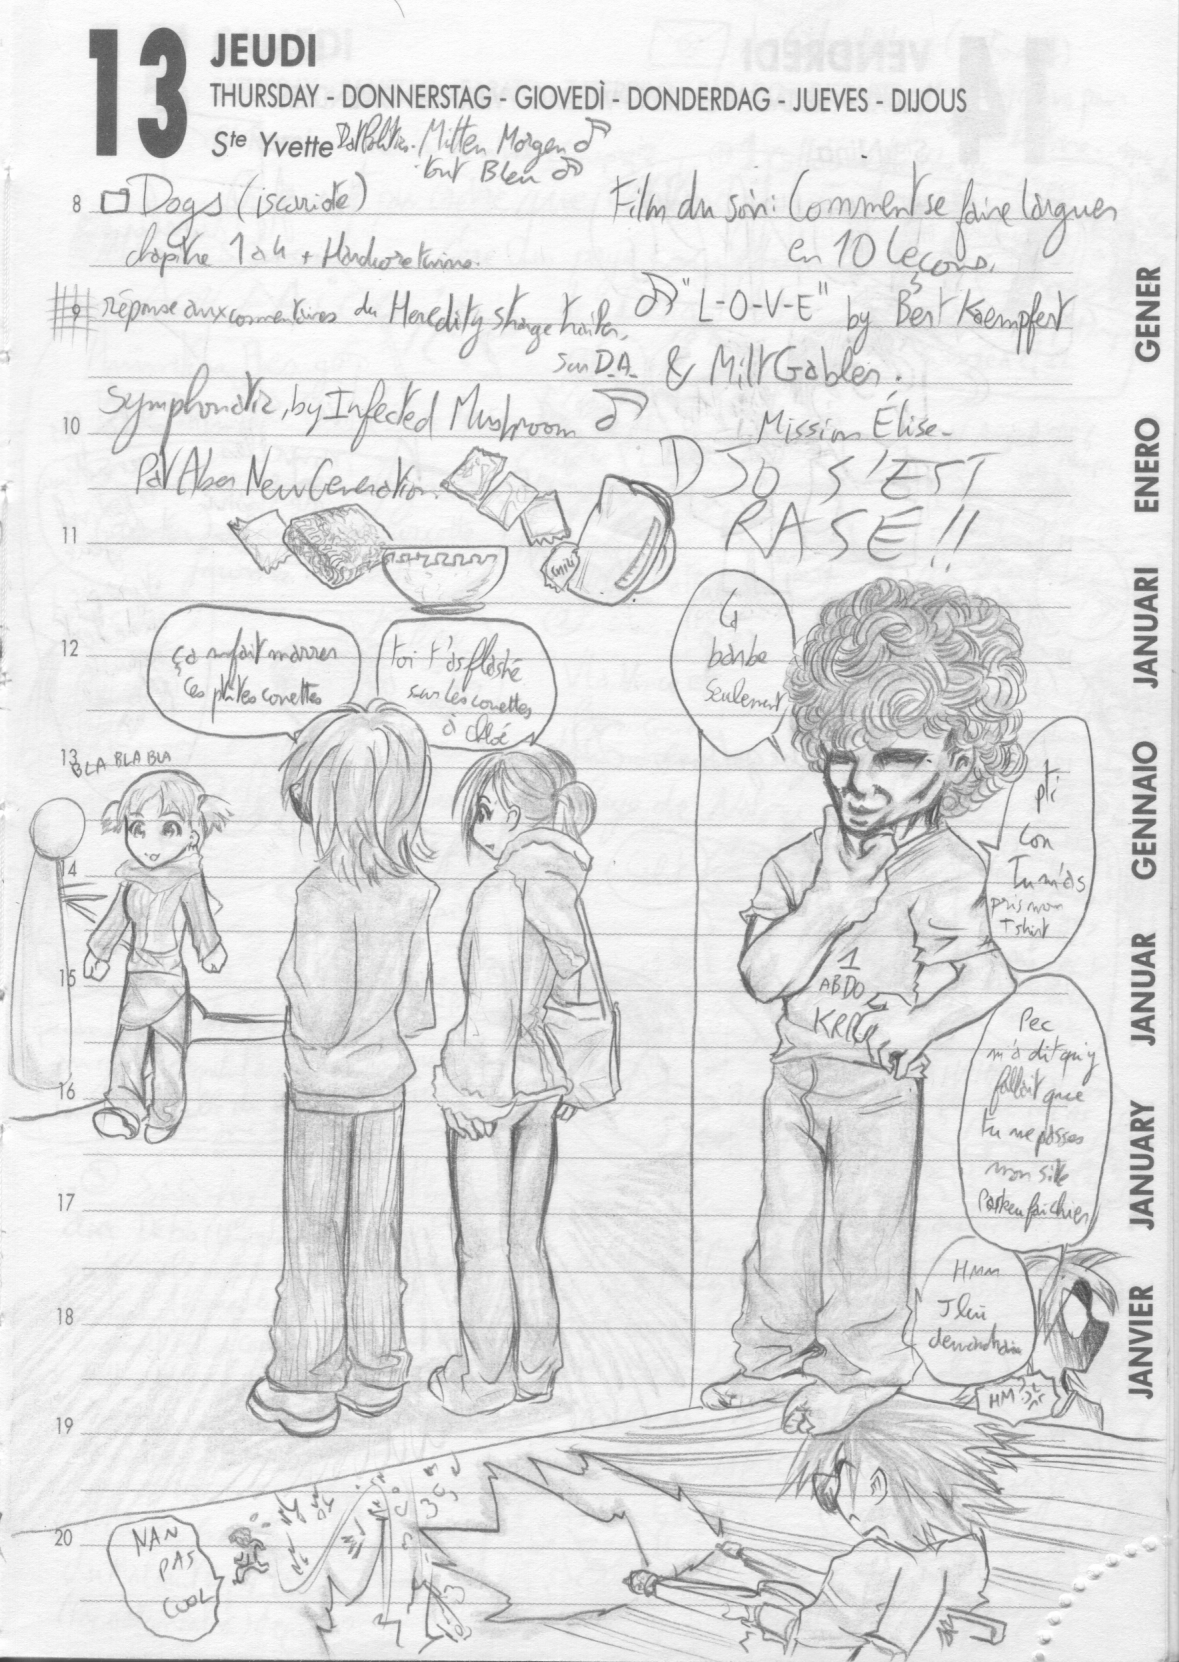 13 JEUDI
THURSDAY - DONNERSTAG - GIOVEDÌ - DONDERDAG - JUEVES - DIJOUS
Ste Yvette Dat Politics. Mitten Morgen
tout Bleu
8 Dogs (iscariote)
chapitre 1 à 4 + Hardcore twins.
Film du soir: Comment se faire larguer
en 10 leçons.
9 réponse aux commentaires du Heredity strange traits,
sur D.A.
"L-O-V-E" by Bert Kaempfert
& Milt Gabler.
Symphonatic, by Infected Mushroom
10
Mission Élise.
Pat Aber New Generation.
DJO S'EST
RASÉ!!
11
12
ça m'fait marrer
ces ptites couettes
toi t'as flashé
sur les couettes
à chloé
La
barbe
seulement
13
BLA BLA BLA
pti
con
Tu m'as
pris mon
T shirt
14
15
1
ABDO
KRRO
Pec
m'a dit qu'y
fallait que
tu me passes
mon slip
16
17
18
HMM
J lui
demanderai
HM
19
20
NAN
PAS
COOL
JANVIER JANUARY JANUAR GENNAIO JANUARI ENERO GENER